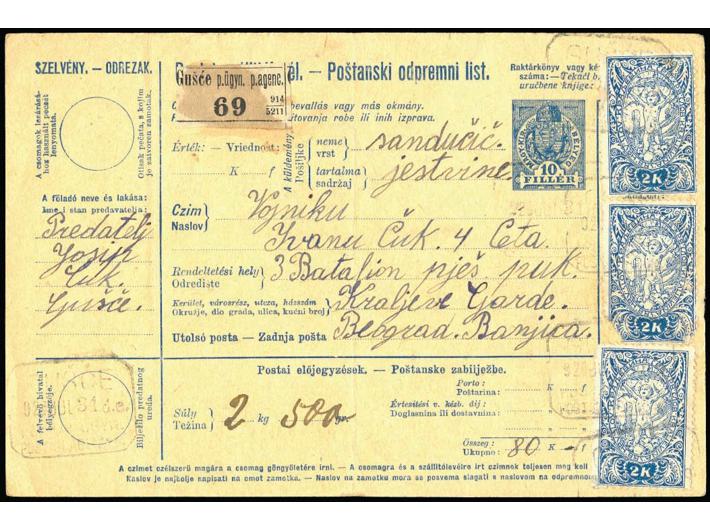 SZELVÉNY. — ODREZAK.
él. — Poštanski odpremni list.
Gušće p.ügyn. p.agenc.
69
914
5211
Raktárkönyv vagy
száma: — Tekući b.
uručbene knjige:
bevallás vagy más okmány.
itovanja robe ili inih izprava.
A csomagok lezárásá-
hoz használt pecsét
lenyomata.
Otisak pečata, s kojim
je zatvoren zamotak.
Érték: — Vriednost:
K f
A küldemény
Pošiljke
neme
vrst
sandučić.
tartalma
sadržaj
jestvine.
10
FILLÉR
2K
A föladó neve és lakása:
Ime i stan predavatelja:
Predatelj
Josip
Čuk.
Gušće.
Czim
Naslov
Vojniku
Ivanu Čuk. 4 Četa.
Rendeltetési hely
Odredište
3 Batalion pješ puk.
Kerület, városrész, utcza, házszám
Okružje, dio grada, ulica, kućni broj
Kraljeve Garde.
Utolsó posta — Zadnja pošta
Beograd. Banjica.
2K
A felvevő hivatal
bélyegzője.
Bilježilo predatnog
ureda.
Postai előjegyzések. — Poštanske zabilježbe.
Porto:
Poštarina:
K f
Értesítési v. kézb. díj:
Doglasnina ili dostavnina:
Súly
Težina
2 kg 500 gr.
Összeg:
Ukupno:
80 K — f
2K
A czimet czélszerű magára a csomag göngyöletére irni. — A csomagra és a szállitólevélre irt czimnek teljesen meg kell
Naslov je najbolje napisati na omot zamotka. — Naslov na zamotku mora se posvema slagati s naslovom na odpremnom